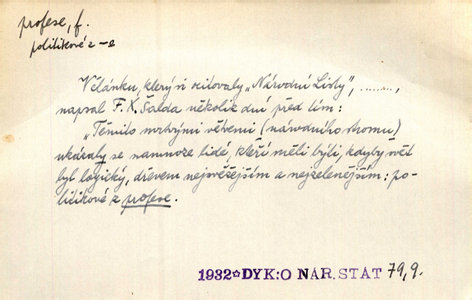 profese, f.
politikové z –e
V článku, který si citovaly „Národní Listy", ........,
napsal F. X. Šalda několik dní před tím:
„Těmito mrtvými větvemi (národního stromu)
ukázaly se namnoze lidé, kteří měli býti, kdyby svět
byl logický, dřevem nejsvěžejším a nejzelenějším: po-
litikové z profese.
1932*DYK:O NÁR. STÁT 79,9.